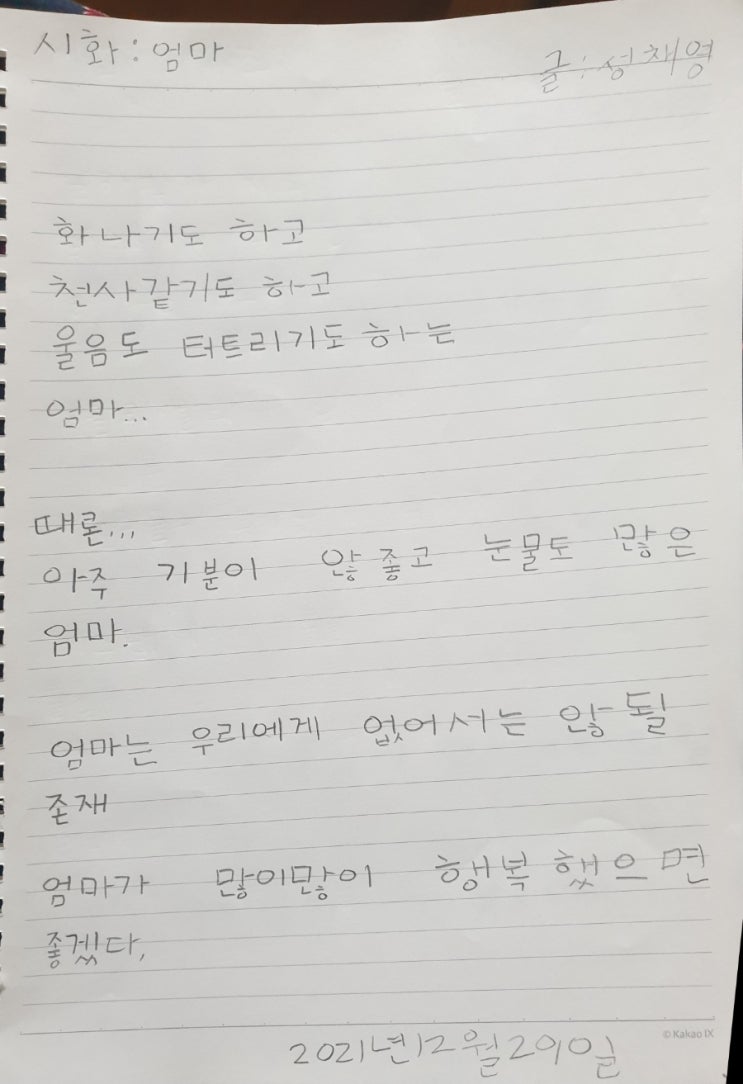 시화: 엄마
글: 성채영
화나기도 하고
천사같기도 하고
울음도 터트리기도 하는
엄마...
때론...
아주 기분이 않좋고 눈물도 많은
엄마.
엄마는 우리에게 없어서는 않될
존재
엄마가 많이많이 행복했으면
좋겠다,
© Kakao IX
2021년12월29일